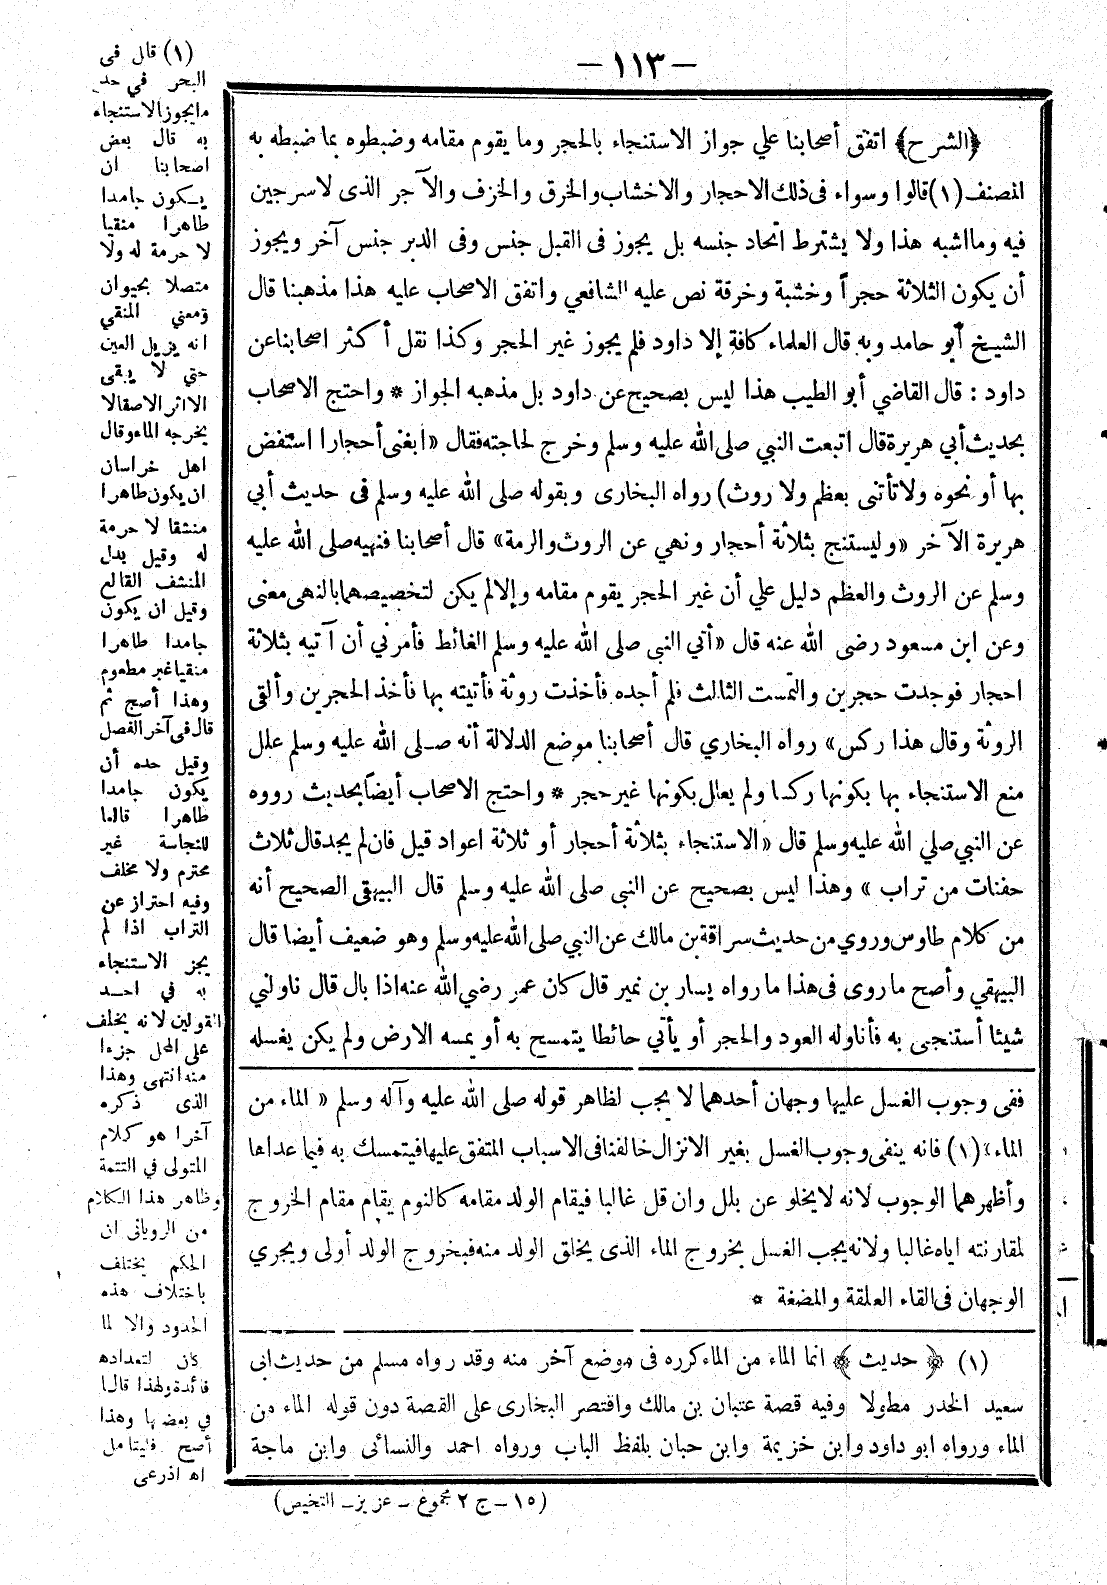 — ١١٣ —
﴿الشرح﴾ اتفق أصحابنا علي جواز الاستنجاء بالحجر وما يقوم مقامه وضبطوه بما ضبطه به
المصنف (١) قالوا وسواء فى ذلك الاحجار والاخشاب والخرق والخزف والآجر الذى لا سرجين
فيه وما اشبه هذا ولا يشترط اتحاد جنسه بل يجوز فى القبل جنس وفى الدبر جنس آخر ويجوز
أن يكون الثلاثة حجراً وخشبة وخرقة نص عليه الشافعي واتفق الاصحاب عليه هذا مذهبنا قال
الشيخ أبو حامد وبه قال العلماء كافة إلا داود فلم يجوز غير الحجر وكذا نقل أكثر اصحابنا عن
داود : قال القاضي أبو الطيب هذا ليس بصحيح عن داود بل مذهبه الجواز * واحتج الاصحاب
بحديث أبي هريرة قال اتبعت النبي صلى الله عليه وسلم وخرج لحاجته فقال «ابغنى أحجارا استنفض
بها أو نحوه ولا تأتنى بعظم ولا روث) رواه البخارى وبقوله صلى الله عليه وسلم فى حديث أبي
هريرة الآخر «وليستنج بثلاثة أحجار ونهي عن الروث والرمة» قال أصحابنا فنهيه صلى الله عليه
وسلم عن الروث والعظم دليل علي أن غير الحجر يقوم مقامه وإلا لم يكن لتخصيصهما بالنهى معنى
وعن ابن مسعود رضى الله عنه قال «أتي النبى صلى الله عليه وسلم الغائط فأمرني أن آتيه بثلاثة
احجار فوجدت حجرين والتمست الثالث فلم أجده فأخذت روثة فأتيته بها فأخذ الحجرين وألقى
الروثة وقال هذا ركس» رواه البخاري قال أصحابنا موضع الدلالة أنه صلى الله عليه وسلم علل
منع الاستنجاء بها بكونها ركسا ولم يعلل بكونها غير حجر * واحتج الاصحاب أيضاً بحديث رووه
عن النبي صلي الله عليه وسلم قال «الاستنجاء بثلاثة أحجار أو ثلاثة اعواد قيل فان لم يجد قال ثلاث
حفنات من تراب » وهذا ليس بصحيح عن النبى صلى الله عليه وسلم قال البيهقى الصحيح أنه
من كلام طاوس وروي من حديث سراقة بن مالك عن النبي صلى الله عليه وسلم وهو ضعيف أيضا قال
البيهقي وأصح ما روى فى هذا ما رواه يسار بن نمير قال كان عمر رضي الله عنه اذا بال قال ناولني
شيئا أستنجى به فأناوله العود والحجر أو يأتي حائطا يتمسح به أو يمسه الارض ولم يكن يغسله
ففى وجوب الغسل عليها وجهان أحدهما لا يجب لظاهر قوله صلى الله عليه وآله وسلم « الماء من
الماء» (١) فانه ينفى وجوب الغسل بغير الانزال خالفنا فى الاسباب المتفق عليها فيتمسك به فيما عداها
وأظهرهما الوجوب لانه لا يخلو عن بلل وان قل غالبا فيقام الولد مقامه كالنوم يقام مقام الخروج
لمقارنته اياه غالبا ولانه يجب الغسل بخروج الماء الذى يخلق الولد منه فبخروج الولد أولى ويجري
الوجهان فى القاء العلقة والمضغة *
(١) ﴿حديث﴾ انما الماء من الماء كرره فى موضع آخر منه وقد رواه مسلم من حديث ابى
سعيد الخدر مطولا وفيه قصة عتبان بن مالك واقتصر البخارى على القصة دون قوله الماء من
الماء ورواه ابو داود وابن خزيمة وابن حبان بلفظ الباب ورواه احمد والنسائى وابن ماجة
(١٥ - ج ٢ مجموع - عزيز - التخيص)
(١) قال فى
البحر في حد
ما يجوز الاستنجاء
به قال بعض
اصحابنا ان
يكون جامدا
طاهرا منقيا
لا حرمة له ولا
متصلا بحيوان
ومعني المنقي
انه يزيل العين
حتي لا يبقى
الا اثر الاصقالا
يخرجه الماء وقال
اهل خراسان
ان يكون طاهرا
منشفا لا حرمة
له وقيل بدل
المنشف القالع
وقيل ان يكون
جامدا طاهرا
منقيا غير مطعوم
وهذا أصح ثم
قال فى آخر الفصل
وقيل حده أن
يكون جامدا
طاهرا قالعا
للنجاسة غير
محترم ولا مخلف
وفيه احتراز عن
التراب اذا لم
يجز الاستنجاء
به في احد
القولين لانه يخلف
على المحل جزءا
منه انتهى وهذا
الذى ذكره
آخرا هو كلام
المتولى في التتمة
وظاهر هذا الكلام
من الرويانى ان
الحكم يختلف
باختلاف هذه
الحدود والا لما
كان لتعداده
فائدة ولهذا قال
في بعضها وهذا
أصح فليتامل
اه اذرعى